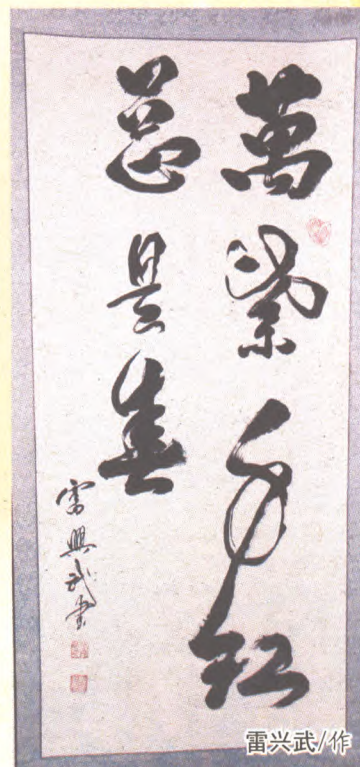 萬紫千红
总是春
雷興武書
雷兴武/作